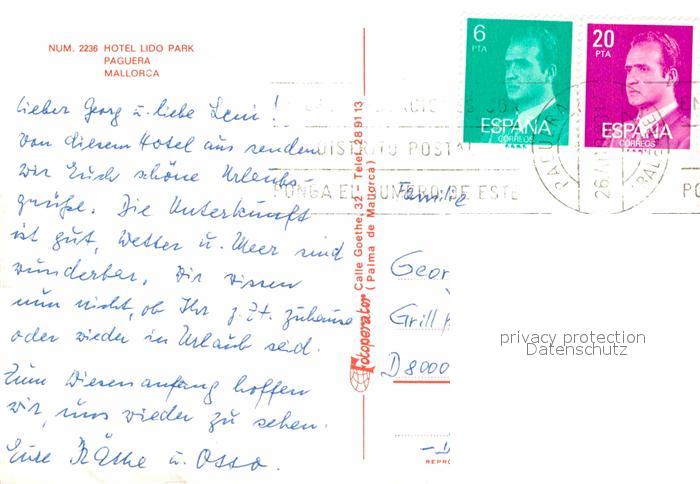 NUM. 2236 HOTEL LIDO PARK
PAGUERA
MALLORCA
Lieber Georg u. liebe Leni!
Von diesem Hotel aus senden
wir Euch schöne Urlaubs-
grüße. Die Unterkunft
ist gut, Wetter u. Meer sind
wunderbar. Wir wissen
nun nicht, ob Ihr z. Zt. zuhause
oder wieder in Urlaub seid.
Zum Wiesenanfang hoffen
wir, uns wieder zu sehen.
Eure Käthe u. Otto.
Fotoperator Calle Goethe, 32 - Telef. 28 91 13
(Palma de Mallorca)
6
PTA
ESPAÑA
CORREOS
20
PTA
ESPAÑA
CORREOS
DISTRITO POSTAL
PONGA EL NUMERO DE ESTE
PO
PAGUERA
Familie
Geor
Grill
D 8000
privacy protection
Datenschutz
REPRO